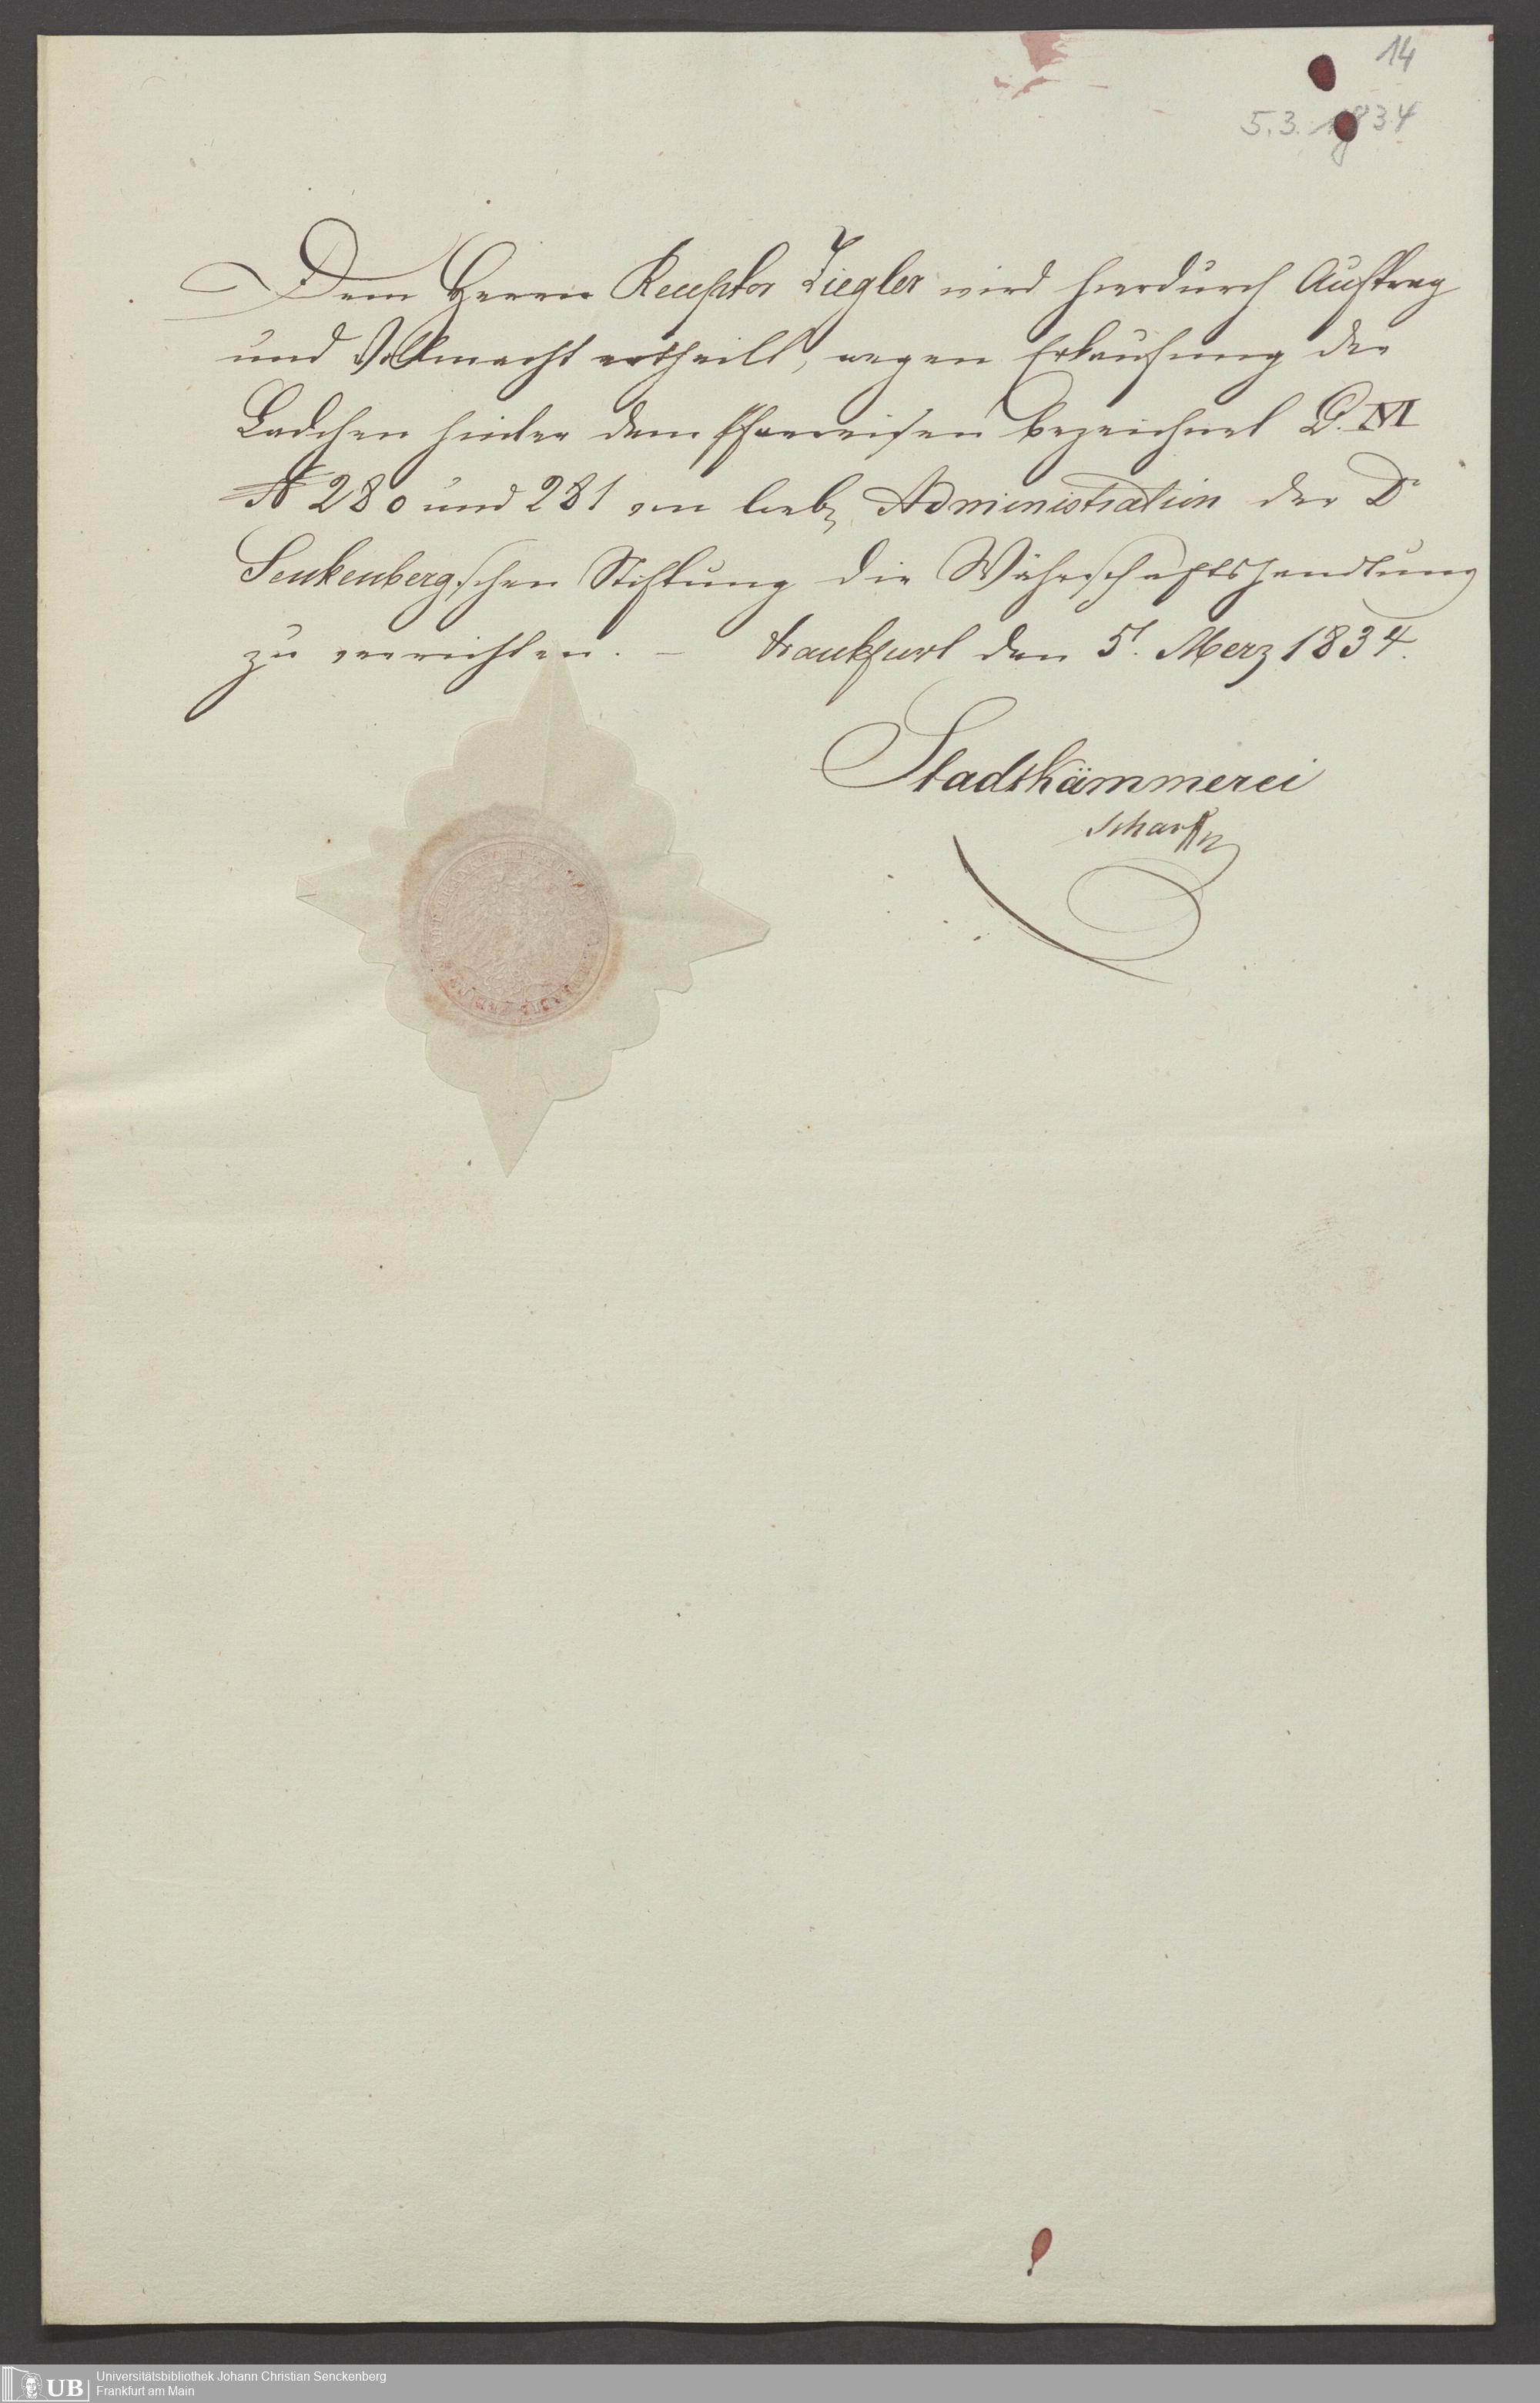 14
5.3.1834
Dem Herrn Receptor Ziegler wird hierdurch Auftrag
und Vollmacht ertheilt, wegen Erkaufung der
Ladchen hinter dem Pfarreisen bezeichnet L. M
N 280 und 281 von löbl. Administration der Dr
Senkenbergschen Stiftung die Währschaftshandlung
zu verrichten. – Frankfurt den 5t. Merz 1834.
Stadtkämmerei
UB
Universitätsbibliothek Johann Christian Senckenberg
Frankfurt am Main